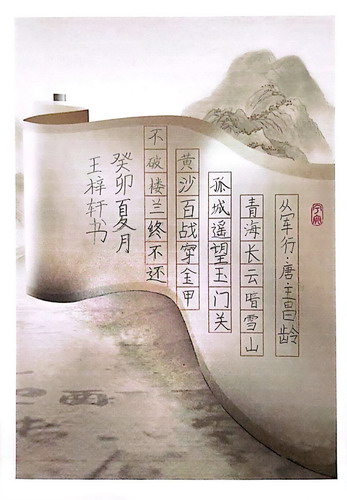 从军行:唐·王昌龄
青海长云暗雪山
孤城遥望玉门关
黄沙百战穿金甲
不破楼兰终不还
癸卯夏月
王梓轩书